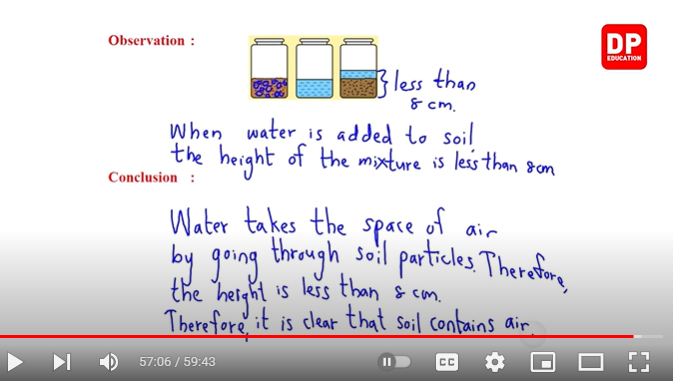 Observation :
DP
EDUCATION
less than
8 cm.
When water is added to soil
the height of the mixture is less than 8cm
Conclusion :
Water takes the space of air
by going through soil particles. Therefore,
the height is less than 8 cm.
Therefore, it is clear that soil contains air.
57:06 / 59:43
CC